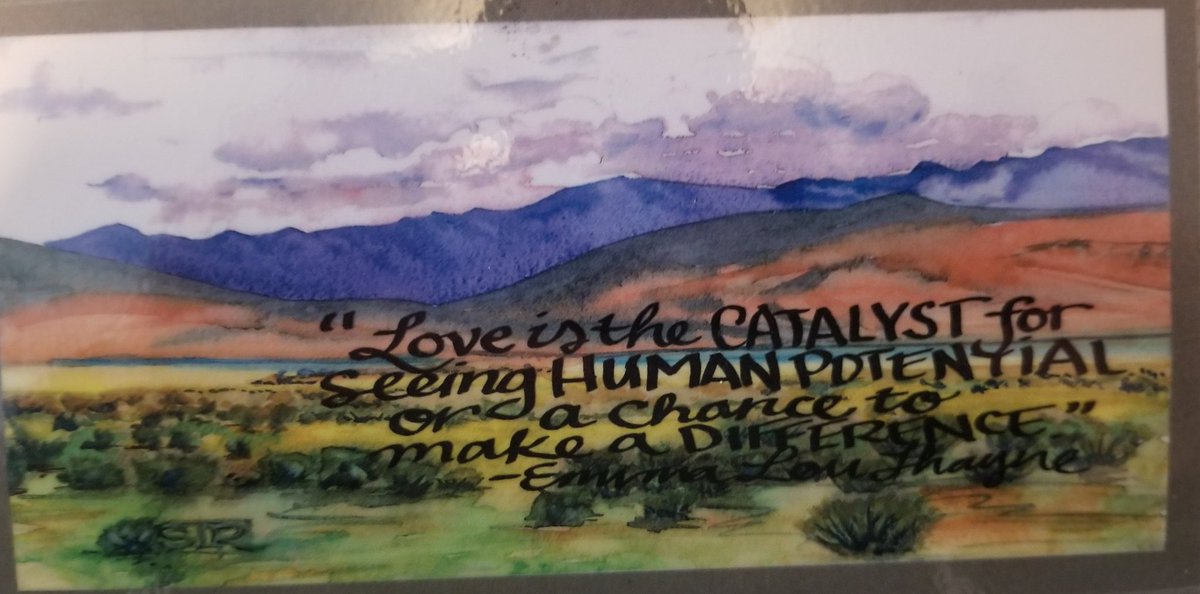 "Love is the CATALYST for
seeing HUMAN POTENTIAL
or a chance to
make a DIFFERENCE."
-Emma Lou Thayne
STR